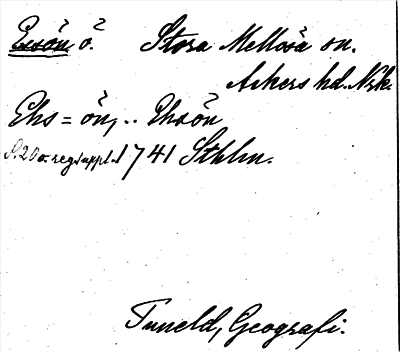 Exön ö. Stora Mellösa sn.
Askers hd. Nrk.
Ehs=ön, .. Ehsön
S. 20 o. reg. suppl. 1741 Sthlm.
Tuneld, Geografi.